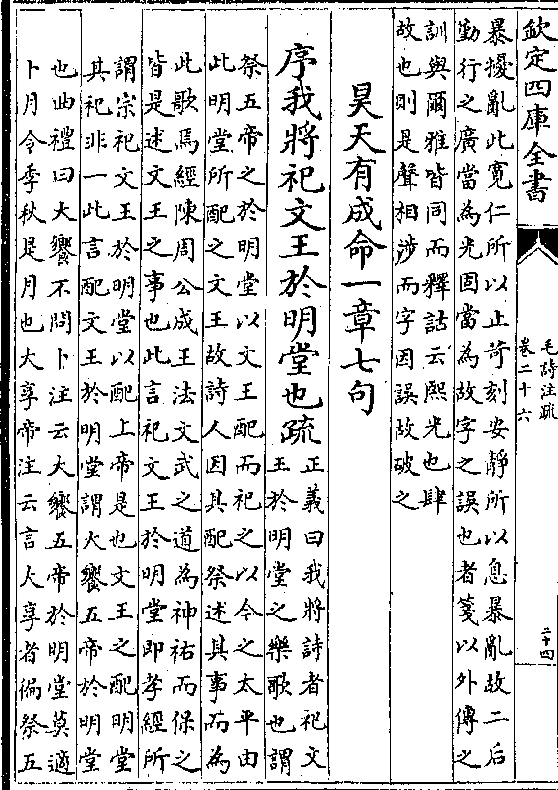 欽定四庫全書
毛詩注疏
卷二十六
二十四
暴擾亂此寛仁所以止苛刻安靜所以息暴亂故二后
勤行之廣當為光固當為故字之誤也者箋以外傳之
訓與爾雅皆同而釋詁云熙光也肆
故也則是聲相涉而字因誤故破之
昊天有成命一章七句
序我將祀文王於明堂也疏
正義曰我將詩者祀文
王於明堂之樂歌也謂
祭五帝之於明堂以文王配而祀之以今之太平由
此明堂所配之文王故詩人因其配祭述其事而為
此歌焉經陳周公成王法文武之道為神祐而保之
皆是述文王之事也此言祀文王於明堂即孝經所
謂宗祀文王於明堂以配上帝是也文王之配明堂
其祀非一此言配文王於明堂謂大饗五帝於明堂
也曲禮曰大饗不問卜注云大饗五帝於明堂莫適
卜月令季秋是月也大享帝注云言大享者徧祭五